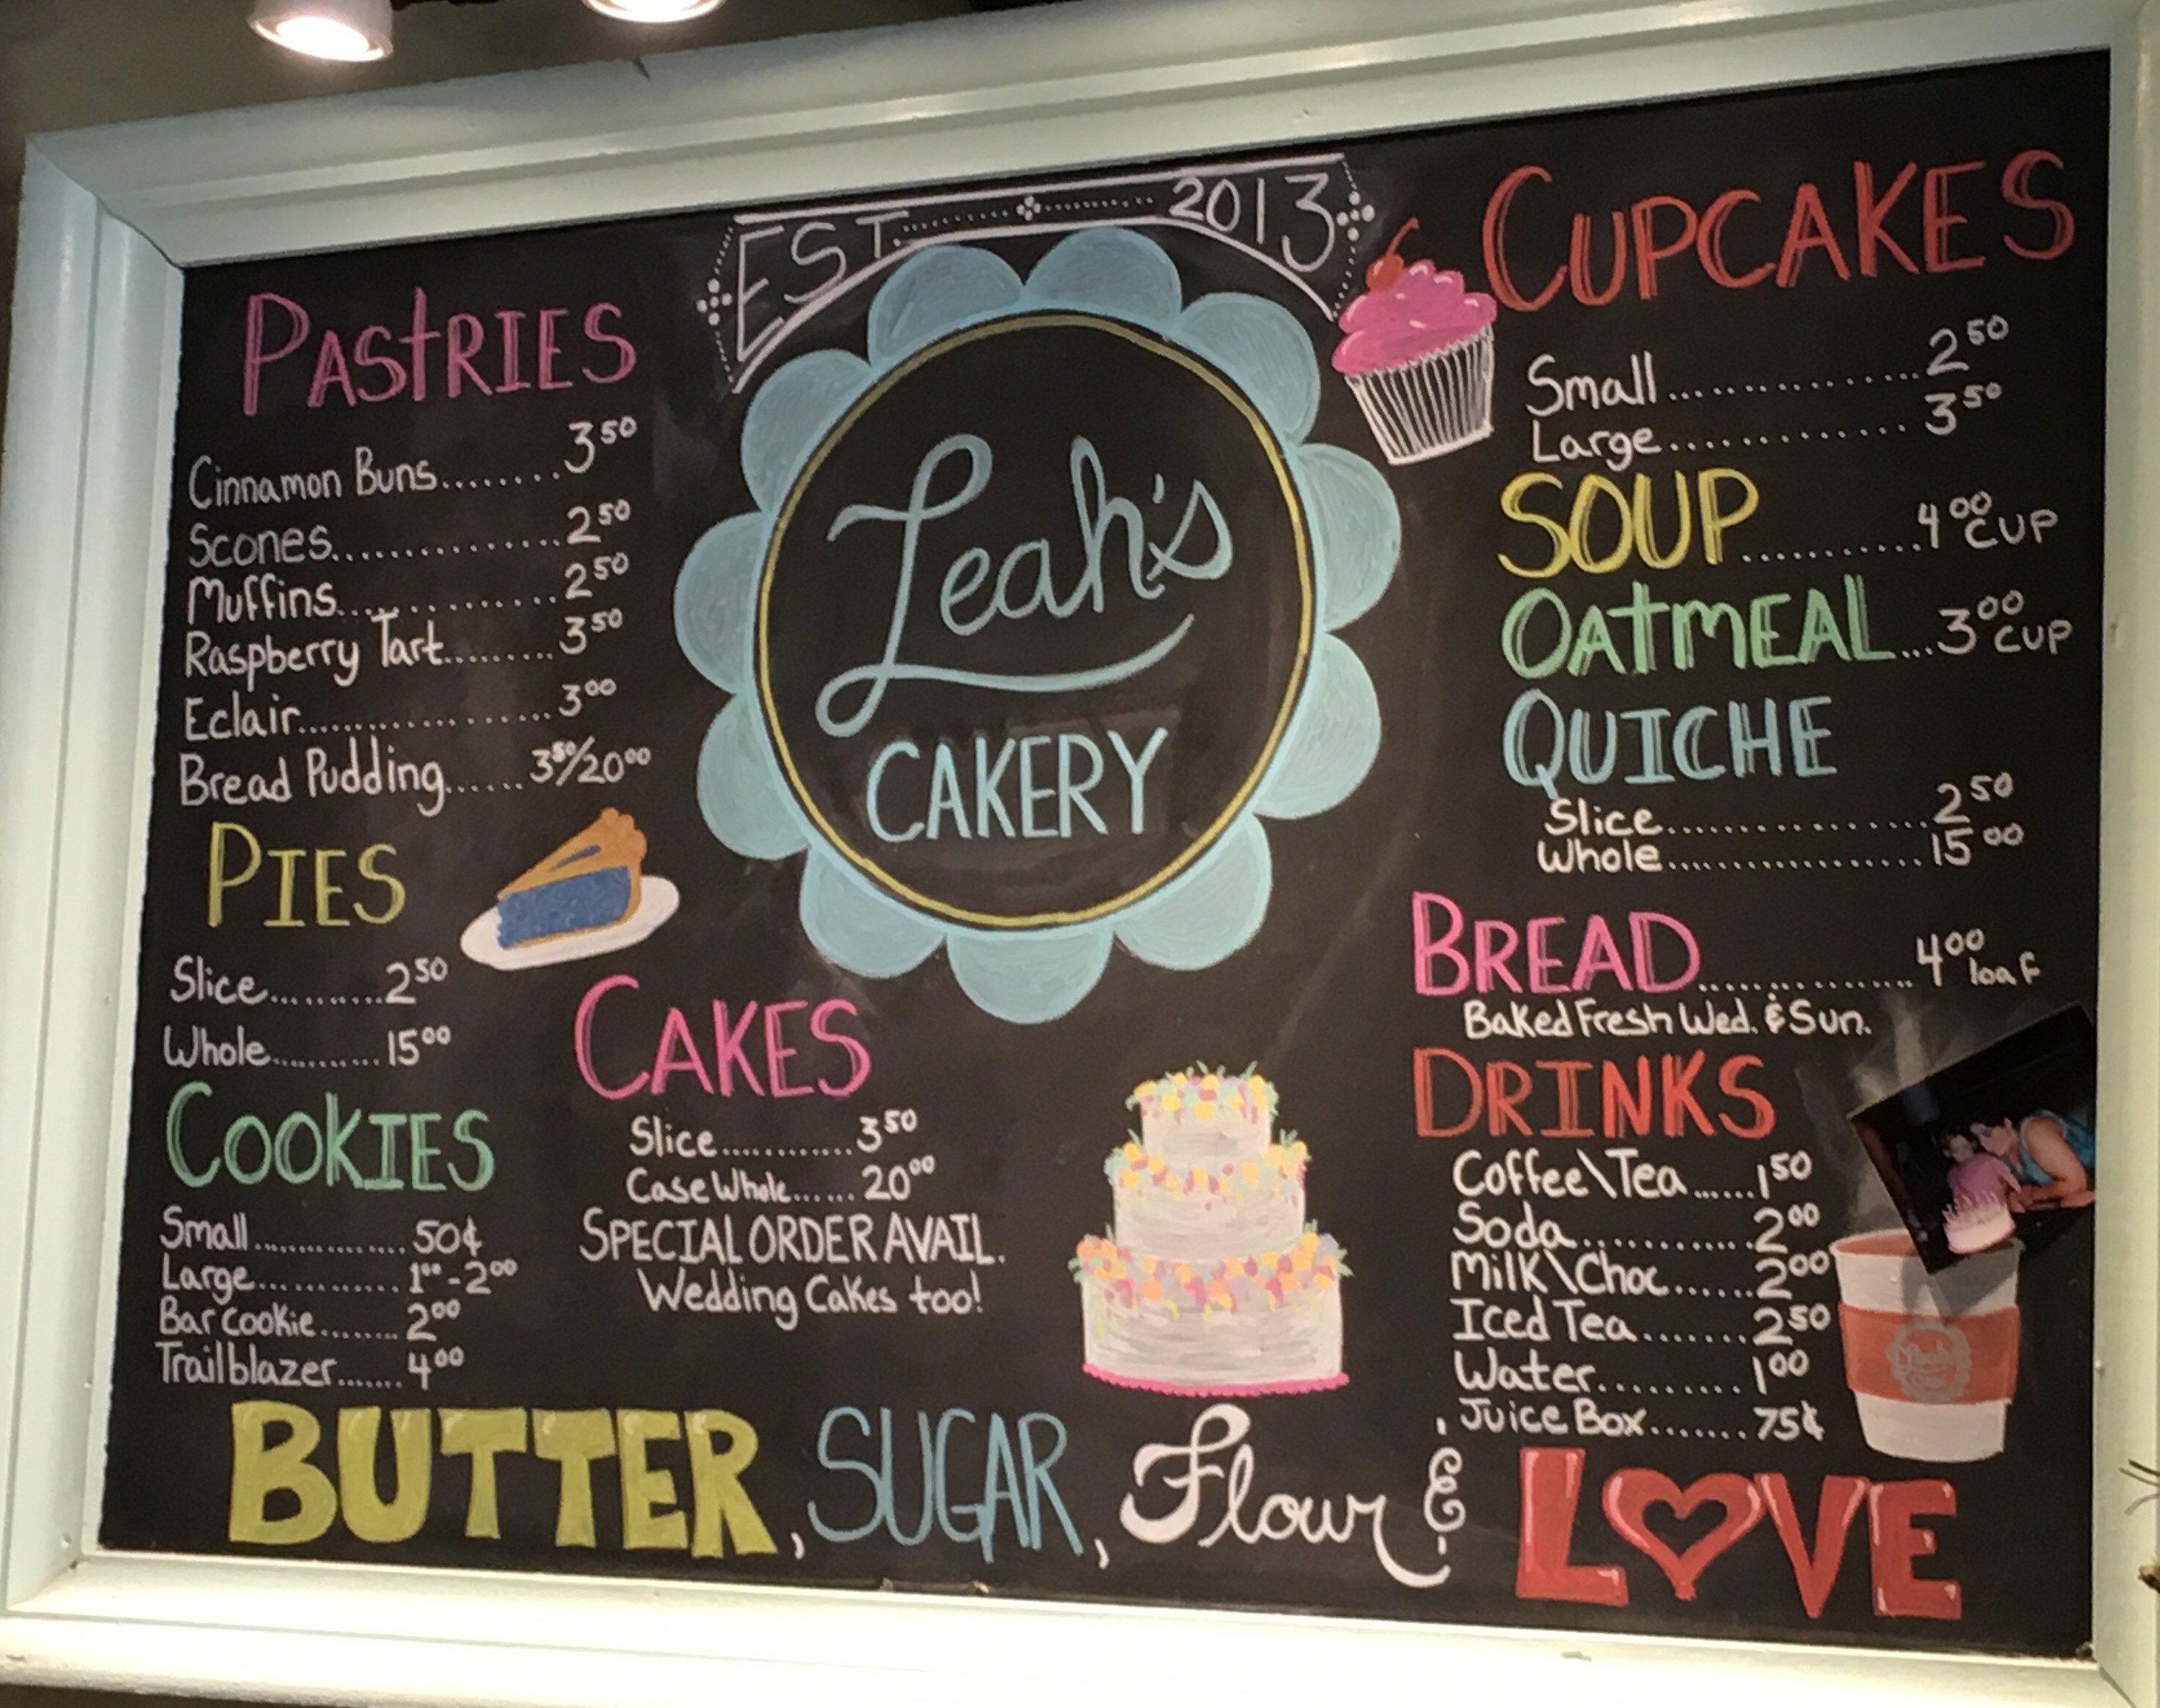 EST. 2013
Leah's
CAKERY
PASTRIES
Cinnamon Buns........3 50
Scones...............2 50
Muffins..............2 50
Raspberry Tart.........3 50
Eclair...................3 00
Bread Pudding......3 50/20 00
PIES
Slice..........2 50
Whole..........15 00
COOKIES
Small..............50¢
Large............1 00-2 00
Bar cookie........2 00
Trailblazer.......4 00
CAKES
Slice............3 50
Case Whole......20 00
SPECIAL ORDER AVAIL.
Wedding Cakes too!
CUPCAKES
Small...............2 50
Large..............3 50
SOUP...........4 00 CUP
OATMEAL...3 00 CUP
QUICHE
Slice.................2 50
Whole.................15 00
BREAD...............4 00 loaf
Baked Fresh Wed. & Sun.
DRINKS
Coffee\Tea......1 50
Soda............2 00
Milk\Choc......2 00
Iced Tea.......2 50
Water..........1 00
Juice Box.......75¢
BUTTER, SUGAR, Flour & LOVE